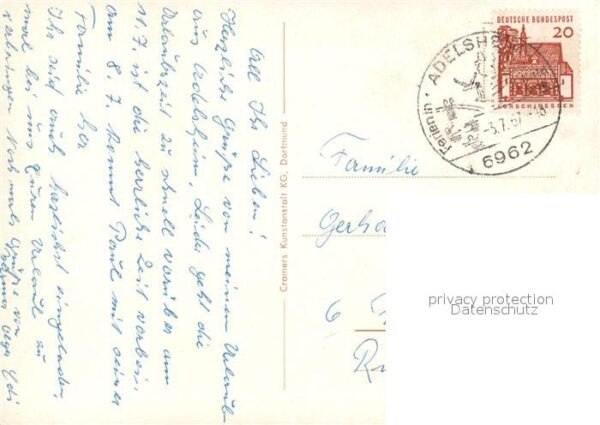 All Ihr Lieben!
Herzliche Grüße von meinem Urlaub
aus Adelsheim. Leider geht die
Urlaubszeit zu schnell vorüber am
11.7. ist die herrliche Zeit vorbei.
am 8.7. kommt Paul mit seiner
Familie her
Ihr seid auch herzlichst eingeladen,
mal bei uns euren Urlaub zu
verbringen nochmals Grüße von
Cramers Kunstanstalt KG, Dortmund
DEUTSCHE BUNDESPOST
20
ADELSHEIM
Ferien in
-5.7.67-18
6962
Familie
Gerha
6
privacy protection
Datenschutz